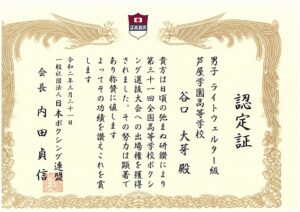 JABF
認定証
男子 ライトウェルター級
芦屋学園高等学校
谷口 大芽 殿
貴方は日頃の弛まぬ研鑽により
第三十一回全国高等学校ボクシ
ング選抜大会への出場権を獲得
されました。その努力は顕著で
あり称賛に値します
よってその功績を讃えこれを賞
します
令和二年三月二十一日
一般社団法人 日本ボクシング連盟
会長 内田 貞信